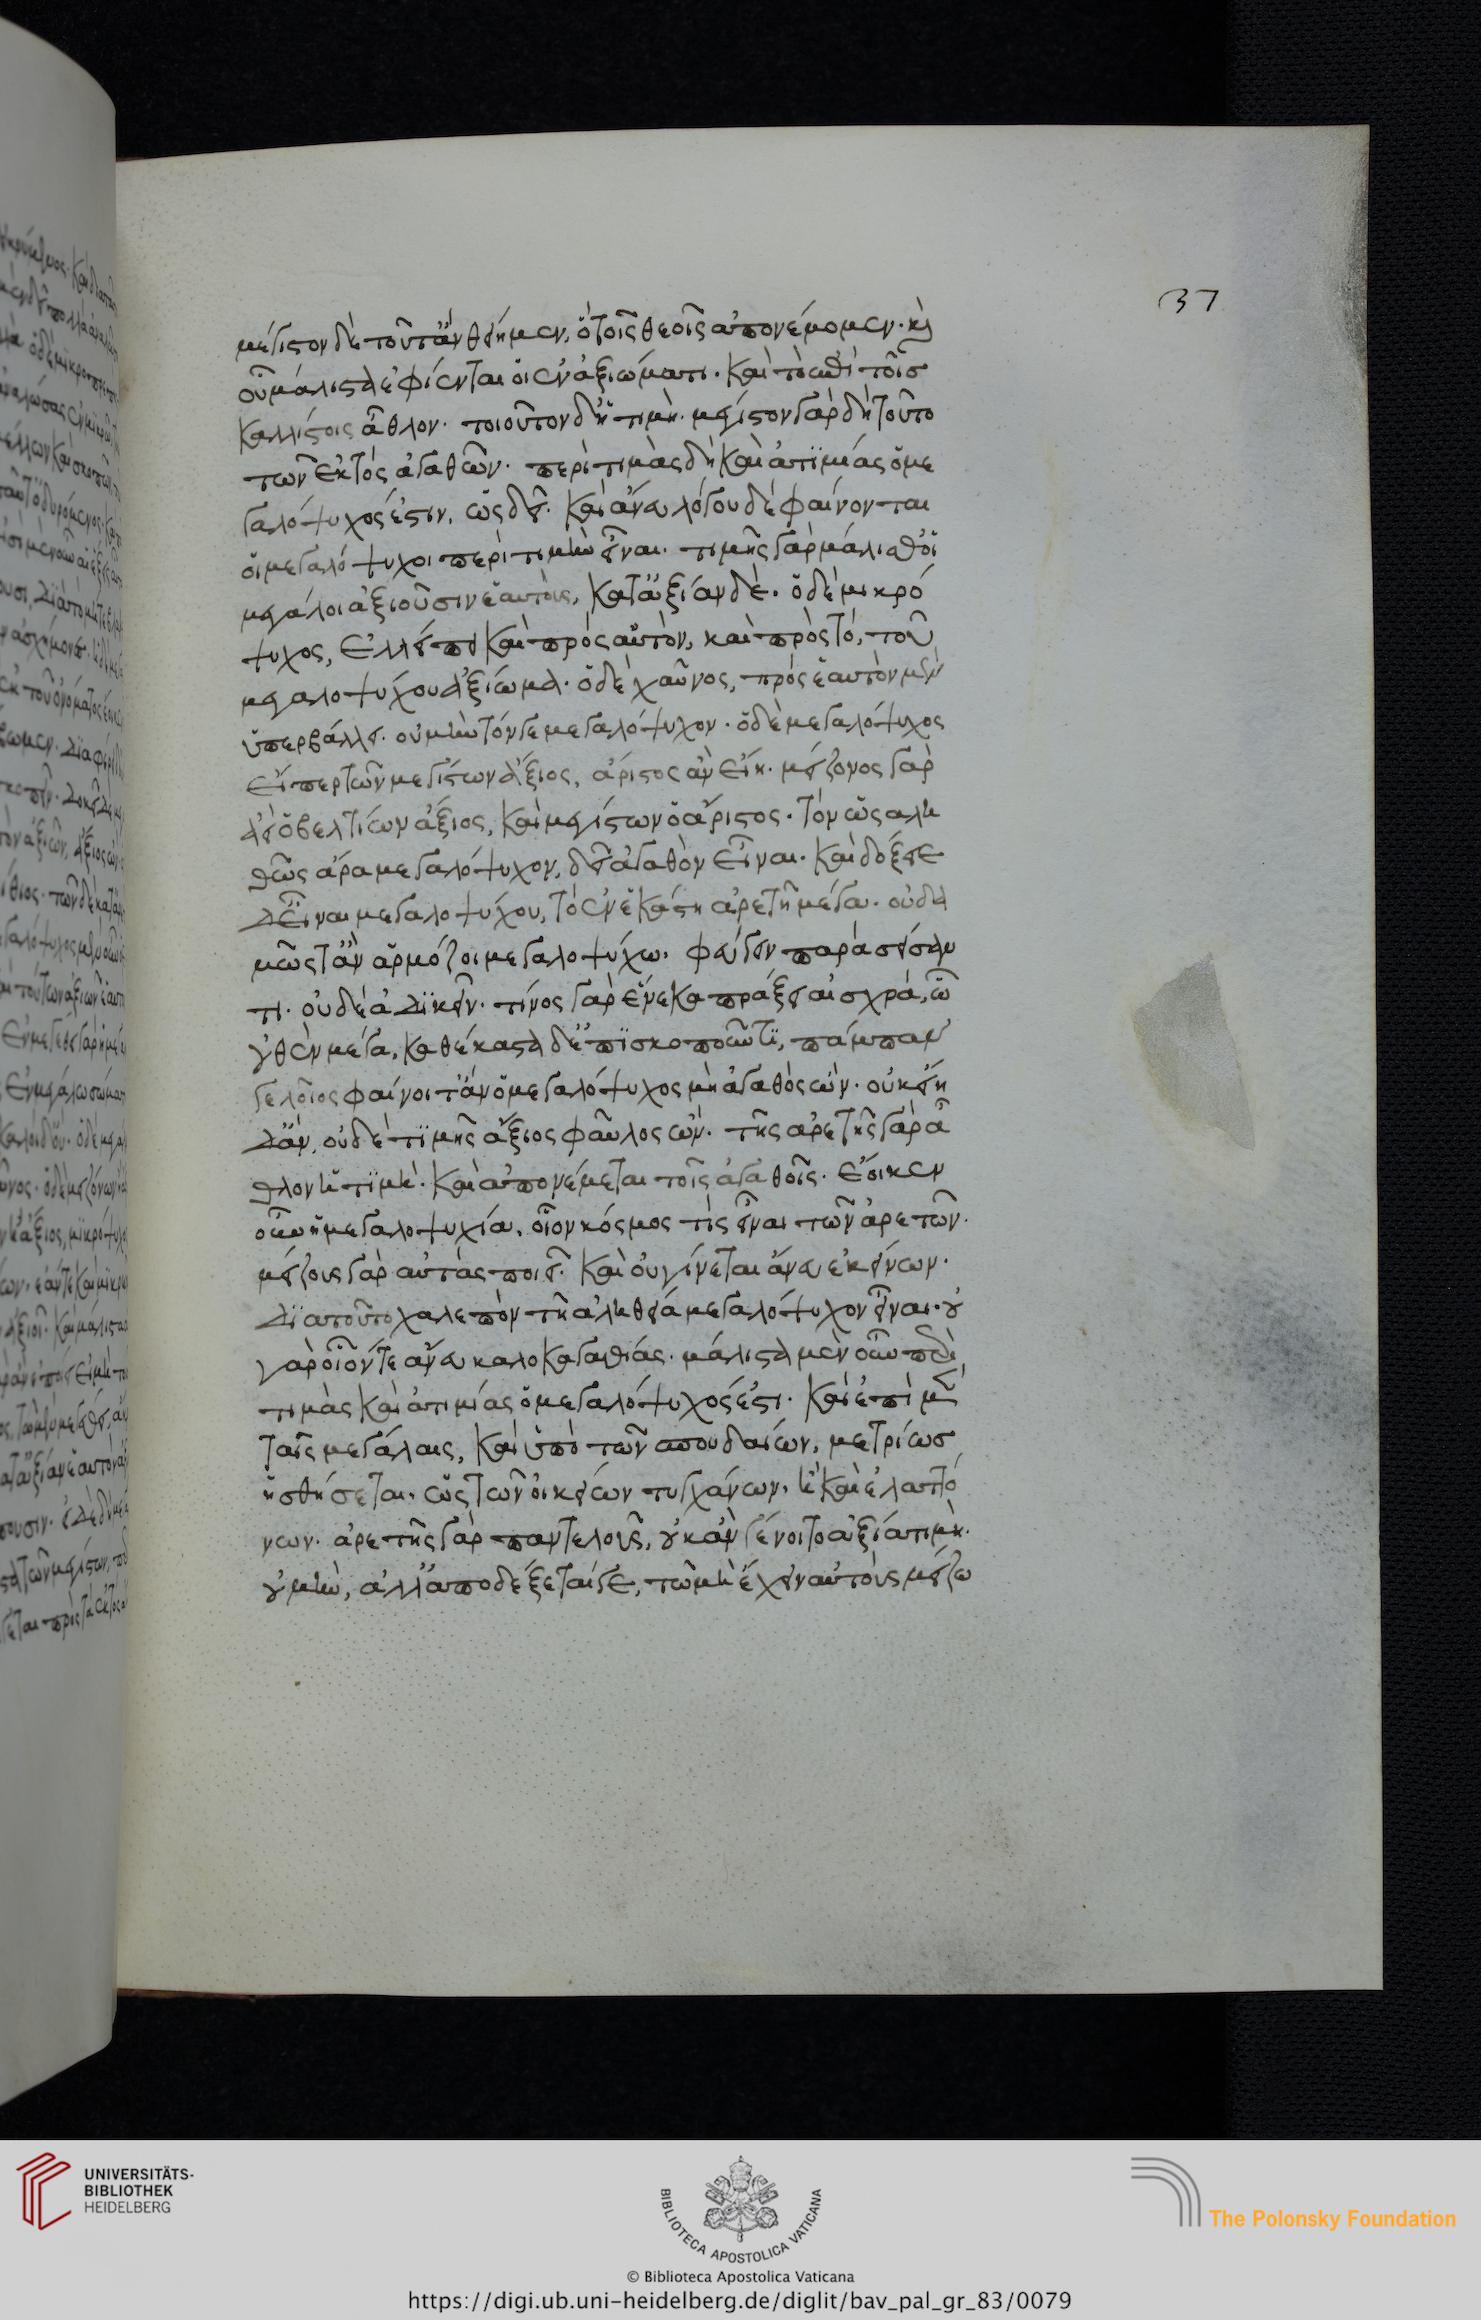 37
μέγιστον δὲ τοῦτ' ἂν θείημεν, ὃ τοῖς θεοῖς ἀπονέμομεν. καὶ
οὗ μάλιστα ἐφίενται οἱ ἐν ἀξιώματι. καὶ τὸ ἐπὶ τοῖς
καλλίστοις ἆθλον. τοιοῦτον δ' ἡ τιμή. μέγιστον γὰρ δὴ τοῦτο
τῶν ἐκτὸς ἀγαθῶν. περὶ τιμὰς δὴ καὶ ἀτιμίας ὁ με
γαλόψυχός ἐστιν, ὡς δεῖ. καὶ ἄνευ λόγου δὲ φαίνονται
οἱ μεγαλόψυχοι περὶ τιμὴν εἶναι. τιμῆς γὰρ μάλισθ' οἱ
μεγάλοι ἀξιοῦσιν ἑαυτούς, κατ' ἀξίαν δέ. ὁ δὲ μικρό
ψυχος, ἐλλείπει καὶ πρὸς αὑτὸν, καὶ πρὸς τὸ, τοῦ
μεγαλοψύχου ἀξίωμα. ὁ δὲ χαῦνος, πρὸς ἑαυτὸν μὲν
ὑπερβάλλει. οὐ μὴν τόν γε μεγαλόψυχον. ὁ δὲ μεγαλόψυχος
εἴπερ τῶν μεγίστων ἄξιος, ἄριστος ἂν εἴη. μείζονος γὰρ
ἀεὶ ὁ βελτίων ἄξιος, καὶ μεγίστων ὁ ἄριστος. τὸν ὡς ἀλη
θῶς ἄρα μεγαλόψυχον, δεῖ ἀγαθὸν εἶναι. καὶ δόξειε
δ' εἶναι μεγαλοψύχου, τὸ ἐν ἑκάστῃ ἀρετῇ μέγα. οὐδα
μῶς τ' ἂν ἁρμόζοι μεγαλοψύχω. φεύγειν παρασείσαν
τι. οὐδὲ ἀδικεῖν. τίνος γὰρ ἕνεκα πράξει αἰσχρά, ὧ
οὐθὲν μέγα, καθέκαστα δ' ἐπισκοποῦντι, πάμπαν
γελοῖος φαίνοιτ' ἂν ὁ μεγαλόψυχος μὴ ἀγαθὸς ὤν. οὐκ εἴη
δ' ἂν, οὐδὲ τιμῆς ἄξιος φαῦλος ὤν. τῆς ἀρετῆς γὰρ ἆ
θλον ἡ τιμή. καὶ ἀπονέμεται τοῖς ἀγαθοῖς. ἔοικεν
οὖν ἡ μεγαλοψυχία, οἷον κόσμος τὶς εἶναι τῶν ἀρετῶν.
μείζους γὰρ αὐτὰς ποιεῖ. καὶ οὐ γίνεται ἄνευ ἐκείνων.
διὰ τοῦτο χαλεπὸν τῇ ἀληθείᾳ μεγαλόψυχον εἶναι. οὐ
γὰρ οἷόν τε ἄνευ καλοκαγαθίας. μάλιστα μὲν οὖν περὶ
τιμὰς καὶ ἀτιμίας ὁ μεγαλόψυχός ἐστι. καὶ ἐπὶ μὲν
ταῖς μεγάλαις, καὶ ὑπὸ τῶν σπουδαίων, μετρίως
ἡσθήσεται. ὡς τῶν οἰκείων τυγχάνων. ἢ καὶ ἐλαττό
νων. ἀρετῆς γὰρ παντελοῦς, οὐκ ἂν γένοιτο ἀξία τιμή.
οὐ μὴν, ἀλλ' ἀποδέξεταί γε, τῶ μὴ ἔχειν αὐτοὺς μείζω
UNIVERSITÄTS-
BIBLIOTHEK
HEIDELBERG
BIBLIOTECA APOSTOLICA VATICANA
© Biblioteca Apostolica Vaticana
The Polonsky Foundation
https://digi.ub.uni-heidelberg.de/diglit/bav_pal_gr_83/0079